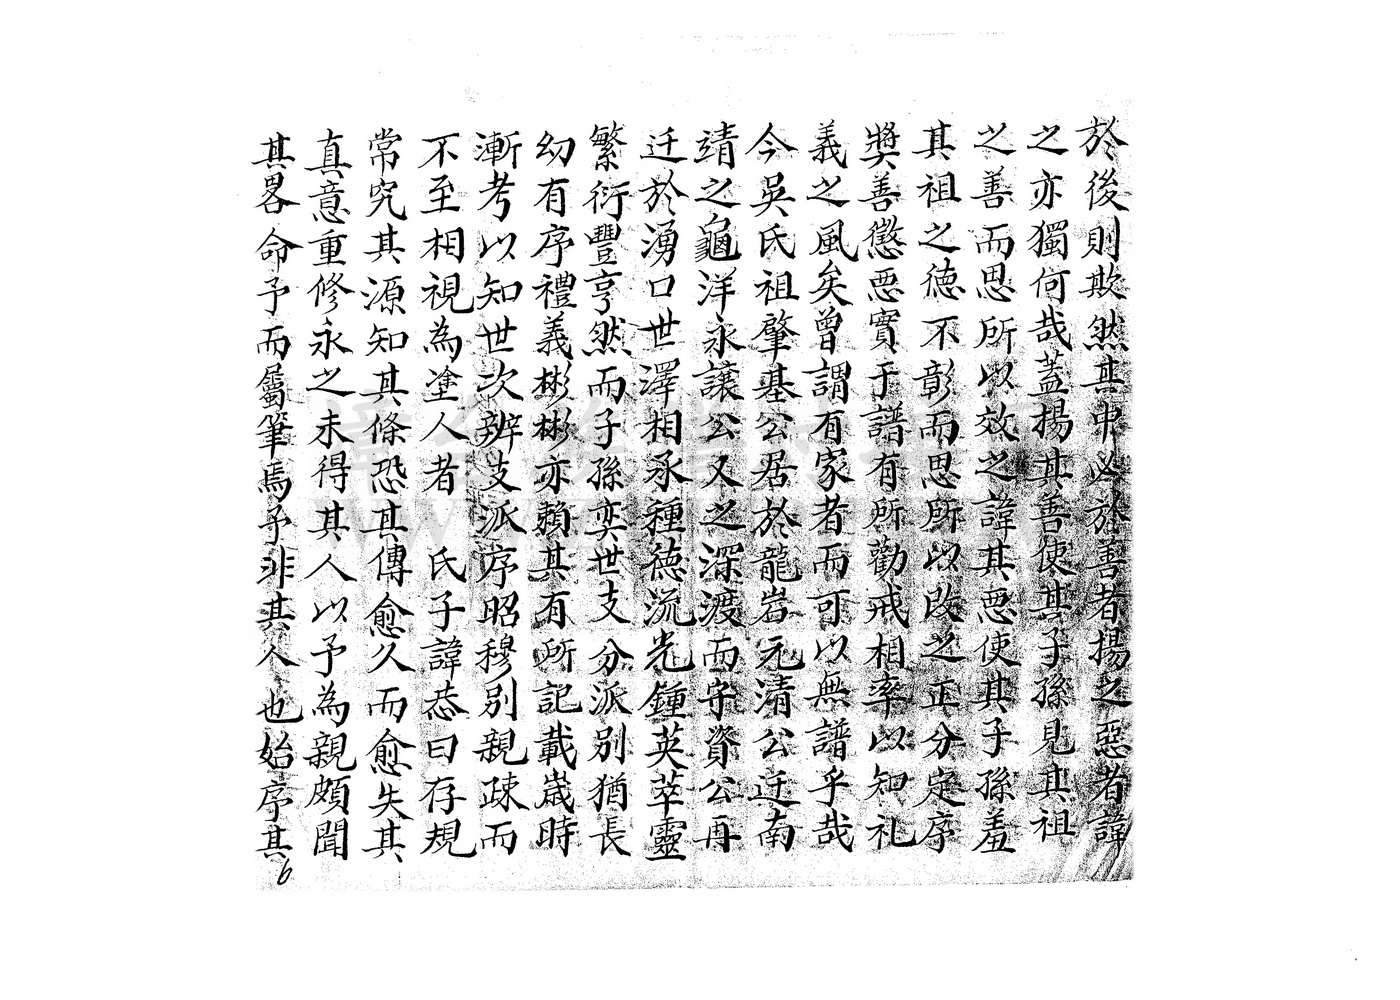 於後則欺然其中必於善者揚之惡者諱
之亦獨何哉蓋揚其善使其子孫見其祖
之善而思所以效之諱其惡使其子孫羞
其祖之德不彰而思所以改之正分定序
獎善懲惡實于譜有所勸戒相率以知礼
義之風矣曾謂有家者而可以無譜乎哉
今吳氏祖肇基公居於龍岩元清公迁南
靖之龜洋永讓公又之深渡而字資公再
迁於湧口世澤相承種德流光鍾英萃靈
繁衍豐亨然而子孫奕世支分派別猶長
幼有序禮義彬彬亦賴其有所記載嵗時
漸考以知世次辨支派序昭穆別親疎而
不至相視為塗人者 氏子諱恭曰存規
常究其源知其條恐其傳愈久而愈失其
真意重修永之未得其人以予為親頗聞
其畧命予而屬筆焉予非其人也始序其
6